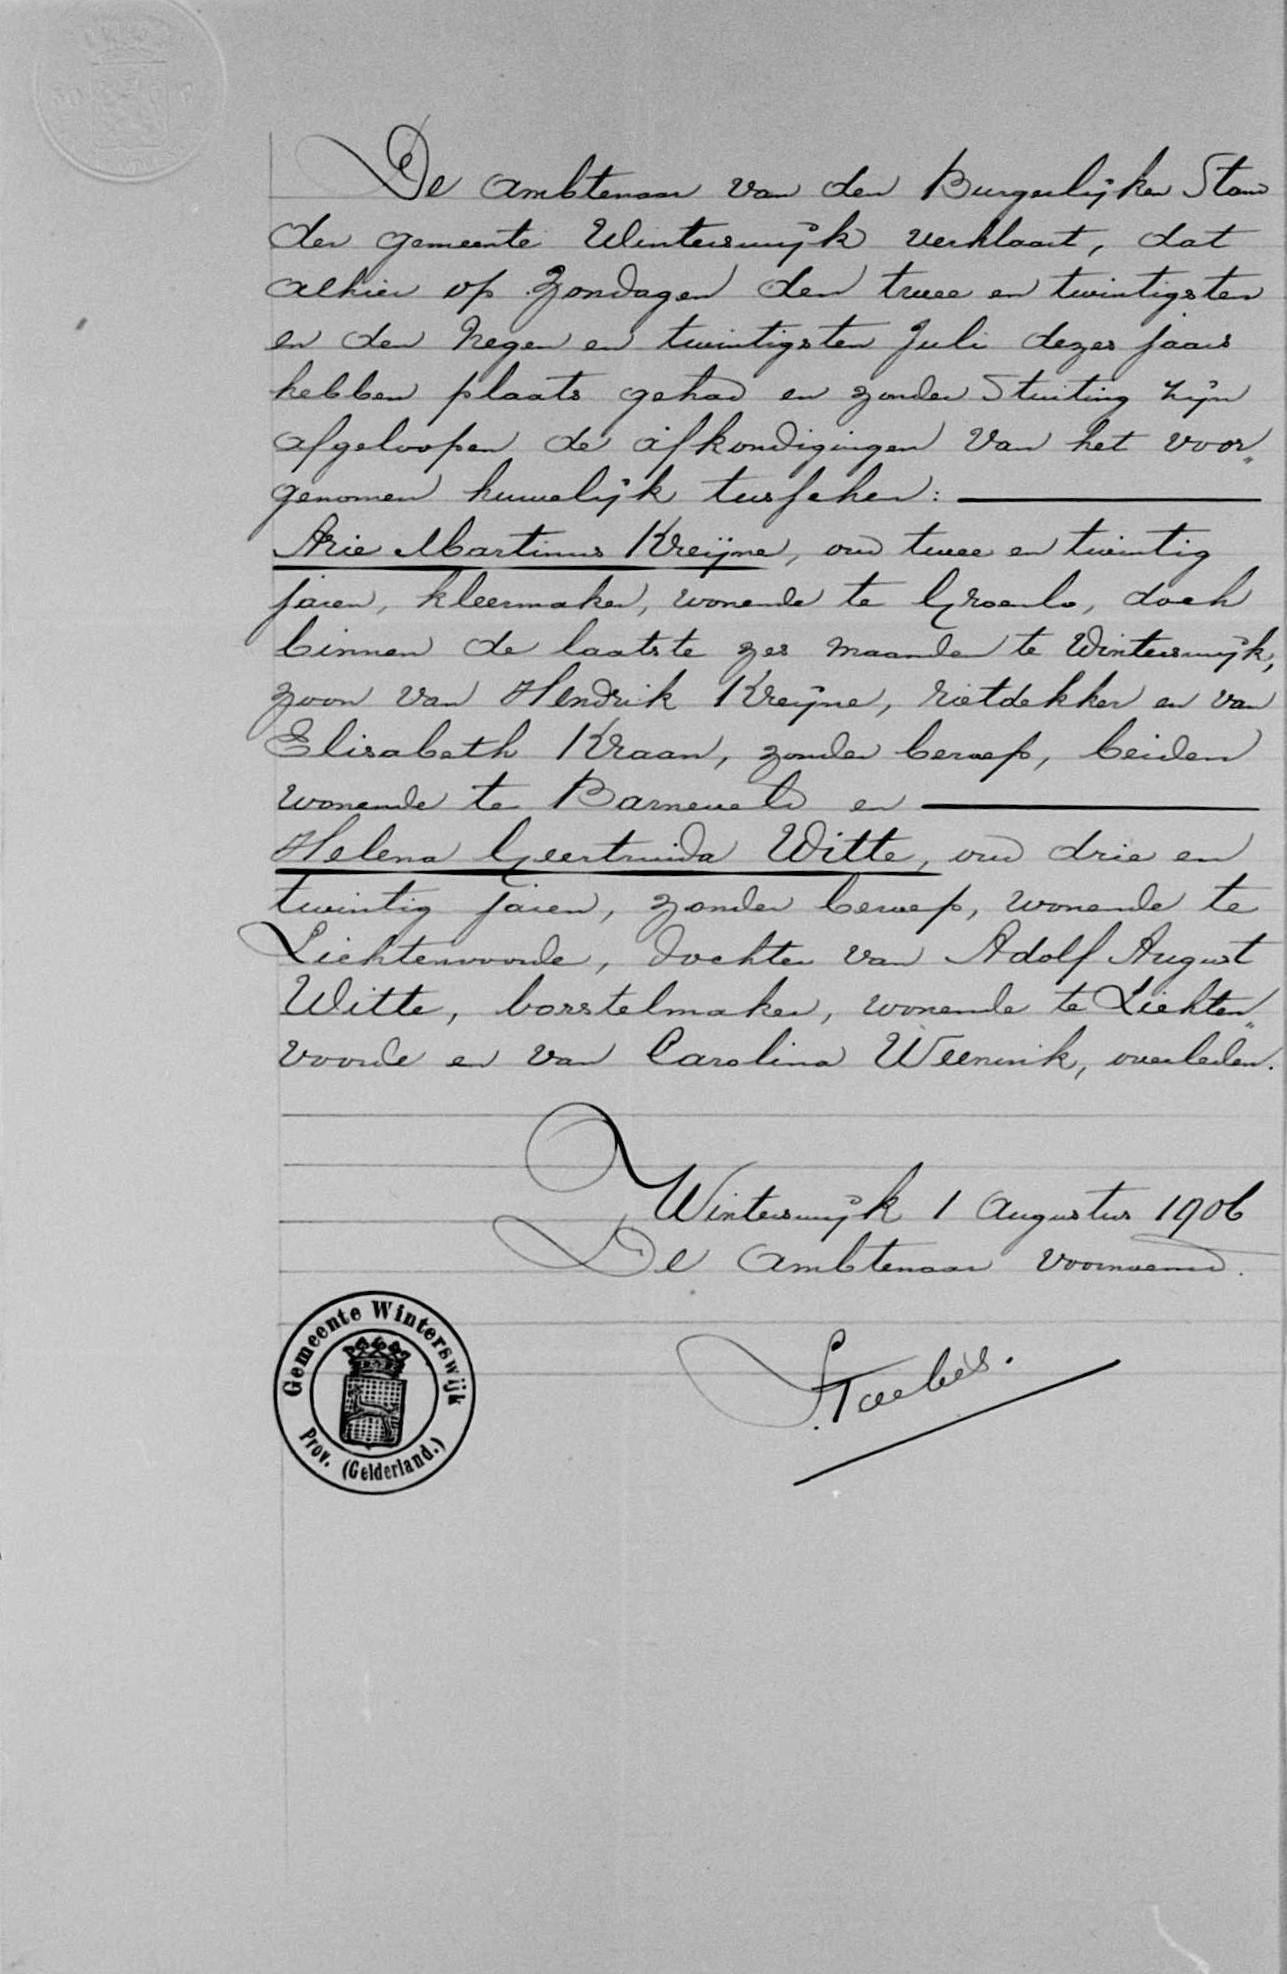 De ambtenaar van den Burgerlijken Stand
der gemeente Winterswijk verklaart, dat
alhier op Zondagen den twee en twintigsten
en den negen en twintigsten Juli dezes jaars
hebben plaats gehad en zonder Stuiting zijn
afgeloopen de afkondigingen van het voor„
genomen huwelijk tusschen:
Arie Martinus Kreijne, oud twee en twintig
jaren, kleermaker, wonende te Groenlo, doch
binnen de laatste zes maanden te Winterswijk,
zoon van Hendrik Kreijne, rietdekker en van
Elisabeth Kraan, zonder beroep, beiden
wonende te Barneveld en
Helena Geertruida Witte, oud drie en
twintig jaren, zonder beroep, wonende te
Lichtenvoorde, dochter van Adolf August
Witte, borstelmaker, wonende te Lichten„
voorde en van Carolina Weenink, overleden.
Winterswijk 1 Augustus 1906
De Ambtenaar voornoemd.
Gemeente Winterswijk
Prov. (Gelderland.)